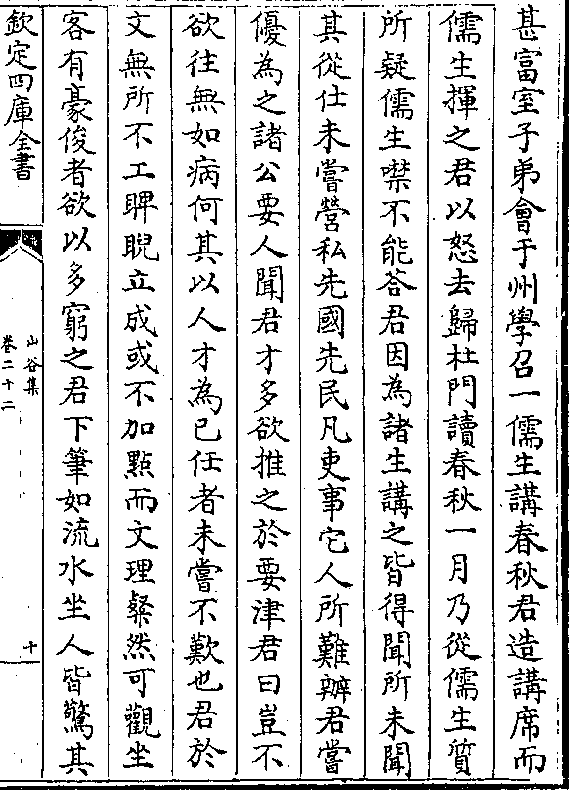 甚富室子弟會于州學召一儒生講春秋君造講席而
儒生揮之君以怒去歸杜門讀春秋一月乃從儒生質
所疑儒生噤不能答君因為諸生講之皆得聞所未聞
其從仕未嘗營私先國先民凡吏事它人所難辦君嘗
優為之諸公要人聞君才多欲推之於要津君曰豈不
欲往無如病何其以人才為已任者未嘗不歎也君於
文無所不工睥睨立成或不加點而文理粲然可觀坐
客有豪俊者欲以多窮之君下筆如流水坐人皆驚其
欽定四庫全書
山谷集
卷二十二
十